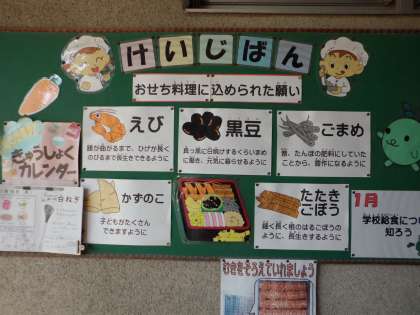 けいじばん
おせち料理に込められた願い
えび
腰が曲がるまで、ひげが長く
のびるまで長生きできるように
黒豆
真っ黒に日焼けするくらいまめ
に働き、元気に暮らせるように
ごまめ
昔、たんぼの肥料にしていた
ことから、豊作になるように
きゅうしょく
カレンダー
かずのこ
子どもがたくさん
できますように
たたき
ごぼう
細く長く根のはるごぼうの
ように、長生きするように
1月
学校給食につ
知ろう
白ねぎ
むきをそろえていれましょう